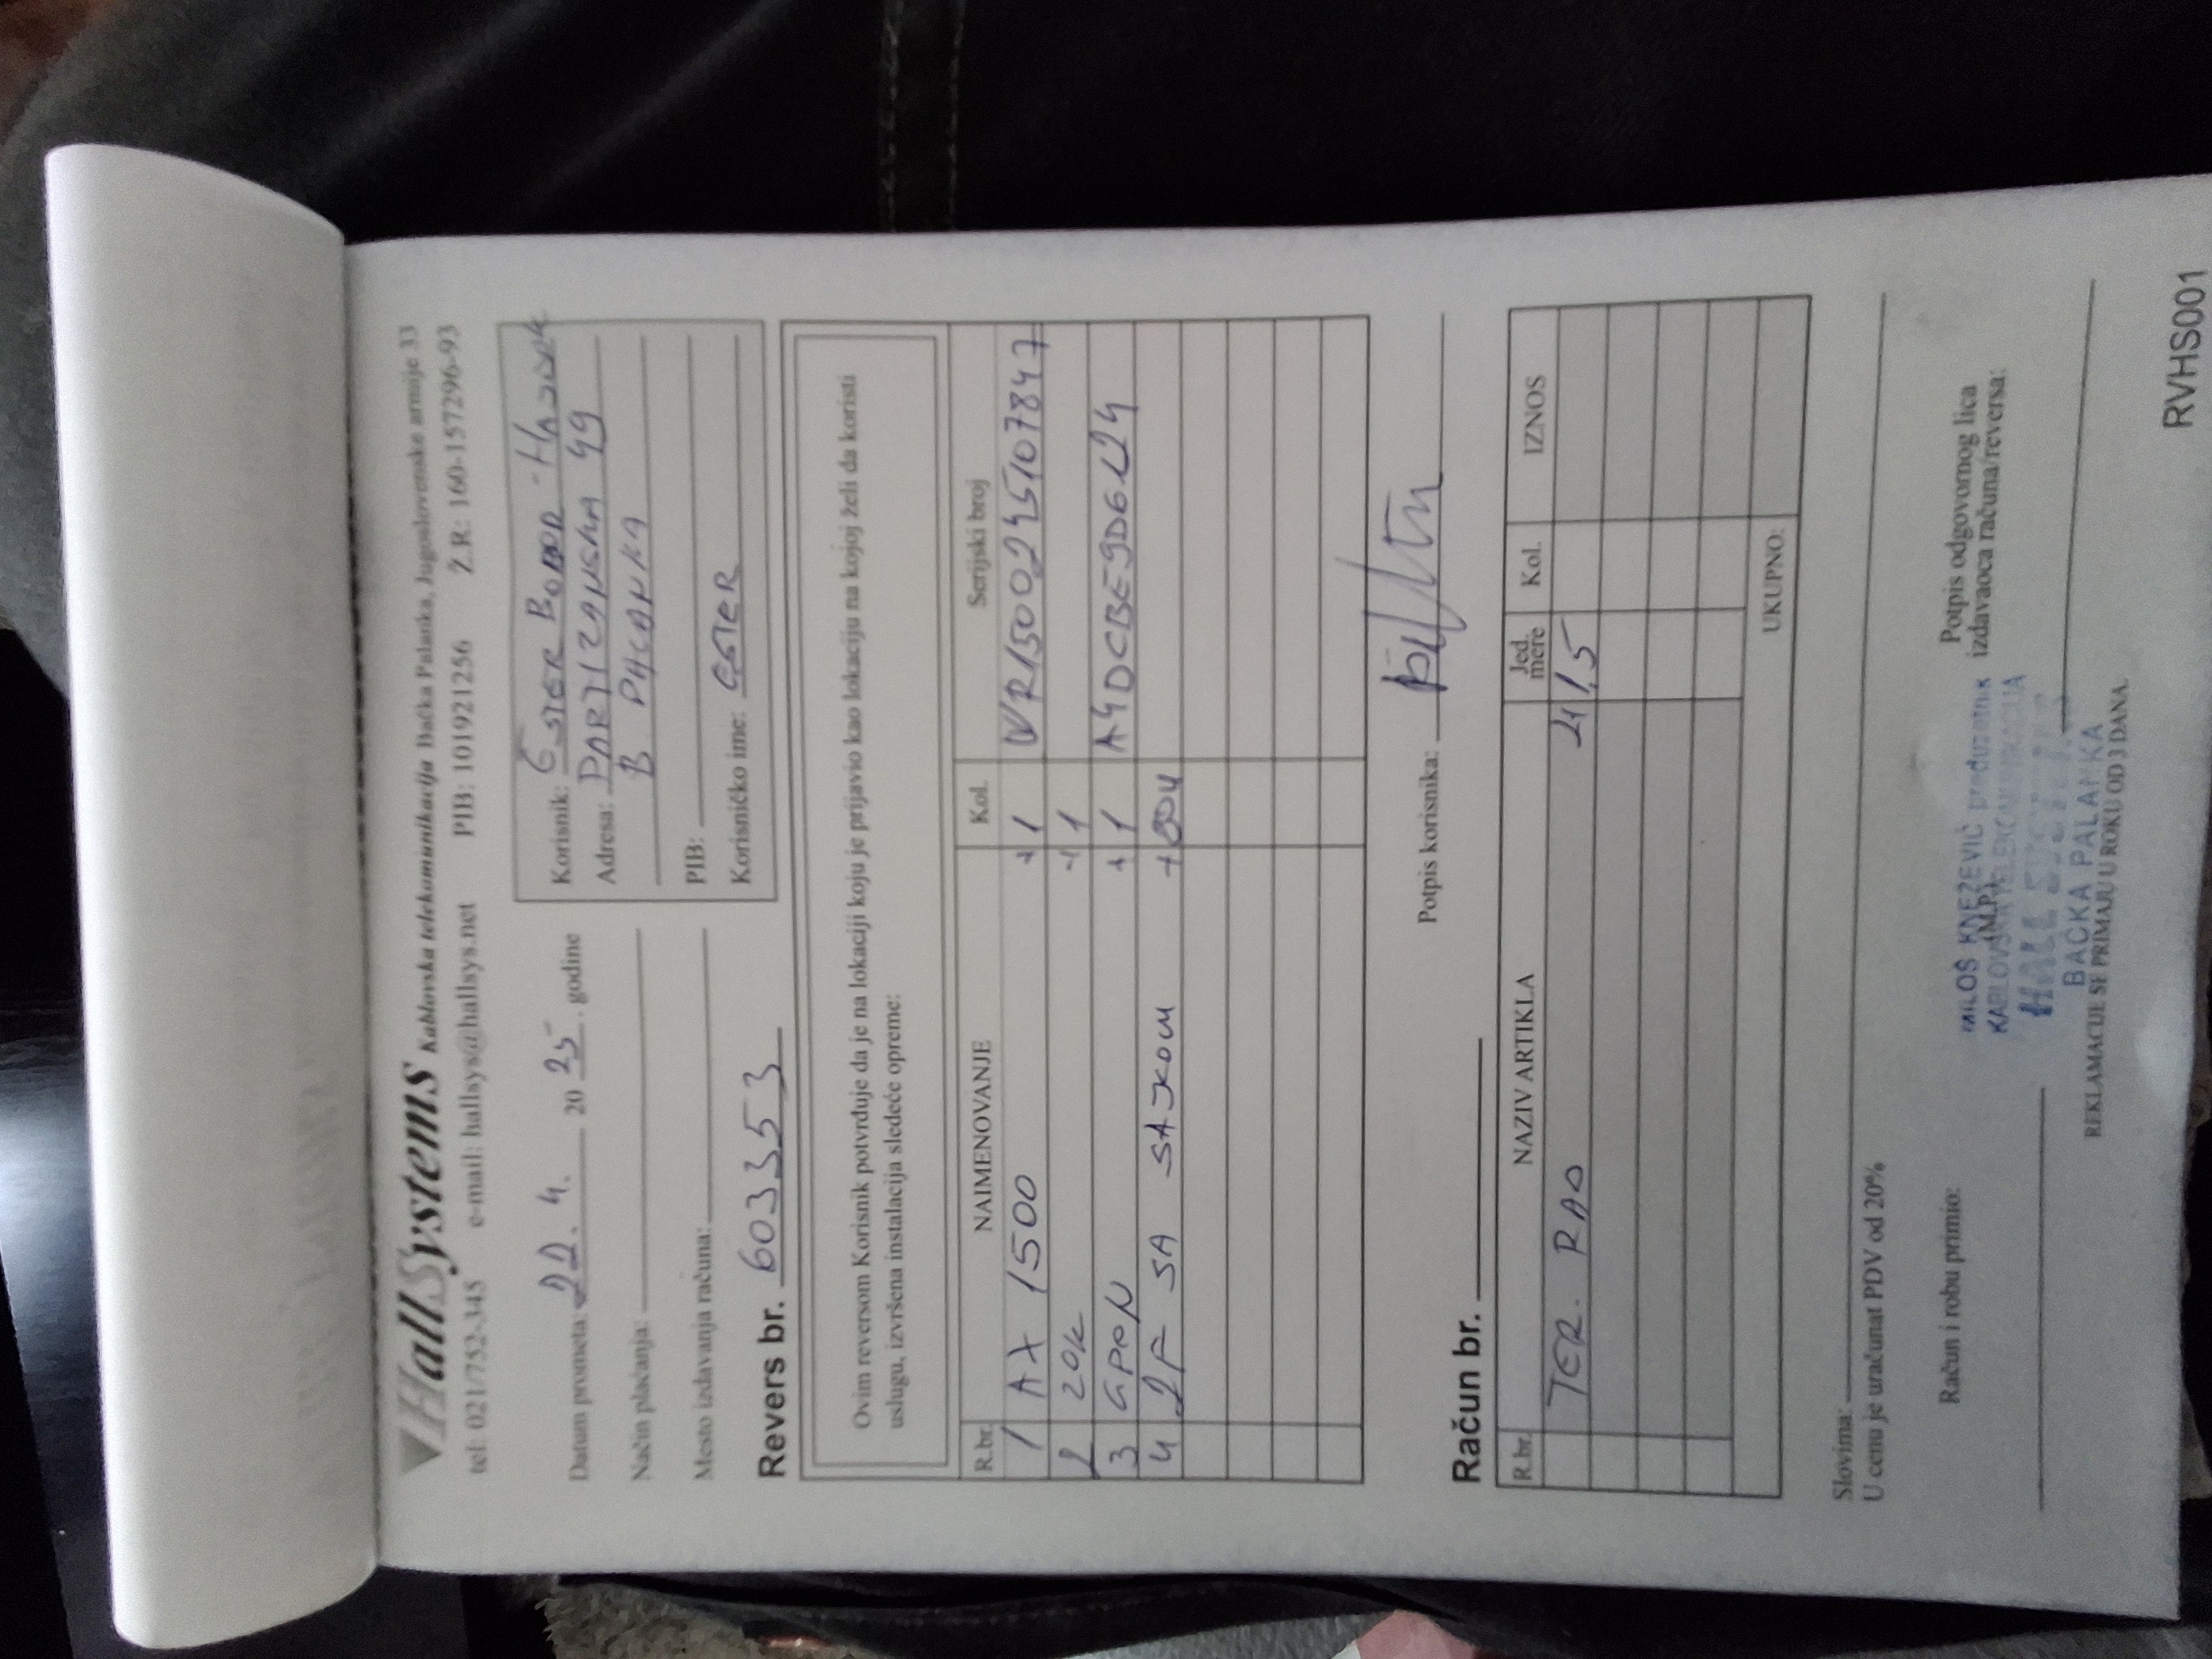 HallSystems Kablovska telekomunikacija Bačka Palanka, Jugoslovenske armije 33
tel. 021/752-345 e-mail: hallsys@hallsys.net PIB: 101921256 Ž.R: 160-157296-93
Datum prometa: 22. 4. 20 25. godine
Način plaćanja:
Mesto izdavanja računa:
Korisnik: ESTER BODOR -
Adresa: PARTIZANSKA 49
B. PALANKA
PIB:
Korisničko ime: ESTER
Revers br. 603353
Ovim reversom Korisnik potvrđuje da je na lokaciji koju je prijavio kao lokaciju na kojoj želi da koristi
uslugu, izvršena instalacija sledeće opreme:
R.br. NAIMENOVANJE Kol. Serijski broj
1 AX 1500 +1 WR1500245107847
2 ZOK -1
3 GPON +1 A4DCBE9D6124
4 2F SA SAJKOM
Potpis korisnika:
Račun br.
R.br. NAZIV ARTIKLA Jed. mere Kol. IZNOS
TER. RAD 41,5
UKUPNO:
Slovima:
U cenu je uračunat PDV od 20%
Račun i robu primio:
(M.P.)
Potpis odgovornog lica
izdavaoca računa/reversa:
MILOŠ KNEŽEVIĆ preduzetnik
KABLOVSKA TELEKOMUNIKACIJA
BAČKA PALANKA
REKLAMACIJE SE PRIMAJU U ROKU OD 3 DANA.
RVHS001